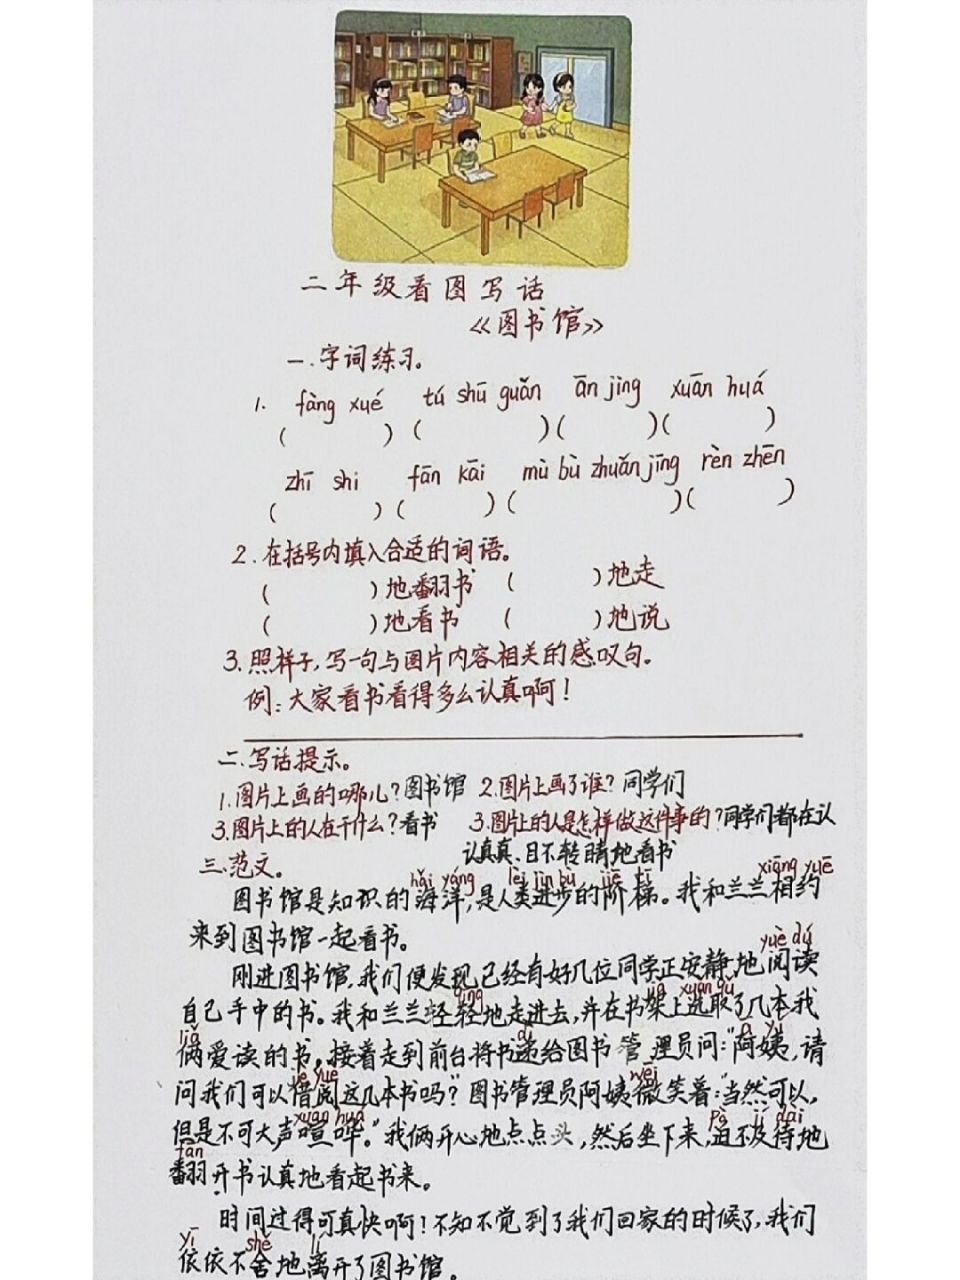 二年级看图写话
《图书馆》
一.字词练习。
1. fàng xué tú shū guǎn ān jìng xuān huá
( ) ( ) ( ) ( )
zhī shi fān kāi mù bù zhuǎn jīng rèn zhēn
( ) ( ) ( ) ( )
2.在括号内填入合适的词语。
( )地翻书 ( )地走
( )地看书 ( )地说
3.照样子,写一句与图片内容相关的感叹句。
例:大家看书看得多么认真啊!
二.写话提示。
1.图片上画的哪儿?图书馆 2.图片上画了谁?同学们
3.图片上的人在干什么?看书 3.图片上的人是怎样做这件事的?同学们都在认
认真真、目不转睛地看书
三.范文。
hǎi yáng lèi jìn bù jiē tī xiāng yuē
图书馆是知识的海洋,是人类进步的阶梯。我和兰兰相约
来到图书馆一起看书。
yuè dú
刚进图书馆,我们便发现已经有好几位同学正安静地阅读
qīng jià xuǎn qǔ
自己手中的书。我和兰兰轻轻地走进去,并在书架上选取了几本我
liǎ dì ā yí
俩爱读的书。接着走到前台将书递给图书管理员问:"阿姨,请
jiè yuè wēi
问我们可以借阅这几本书吗?"图书管理员阿姨微笑着:"当然可以,
xuān huá pò jí dài
但是不可大声喧哗。"我俩开心地点点头,然后坐下来,迫不及待地
fān
翻开书认真地看起书来。
时间过得可真快啊!不知不觉到了我们回家的时候了,我们
yī shě lí
依依不舍地离开了图书馆。